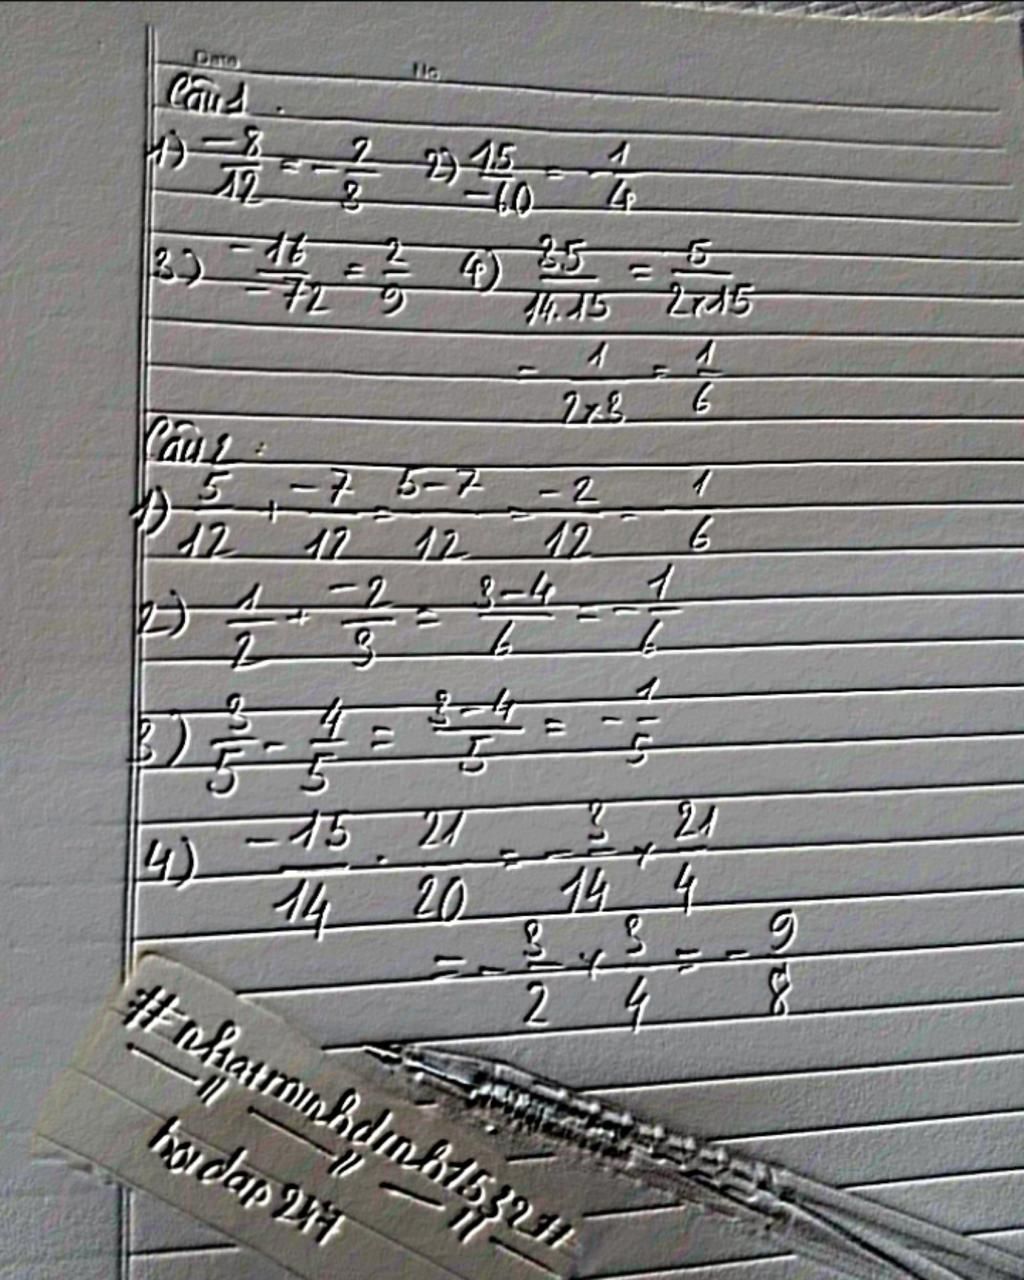 Date No
Câu 1.
1) -8/12 = -2/3 2) 15/-60 = -1/4
3) -16/-72 = 2/9 4) 3.5/14.15 = 5/2×15
= 1/2×3 = 1/6
Câu 2:
1) 5/12 + -7/12 = 5-7/12 = -2/12 = 1/6
2) 1/2 + -2/3 = 3-4/6 = -1/6
3) 3/5 - 4/5 = 3-4/5 = -1/5
4) -15/14 . 21/20 = -3/14 × 21/4
= -3/2 × 3/4 = -9/8
#nhatminhdinh1532#
hoidap247